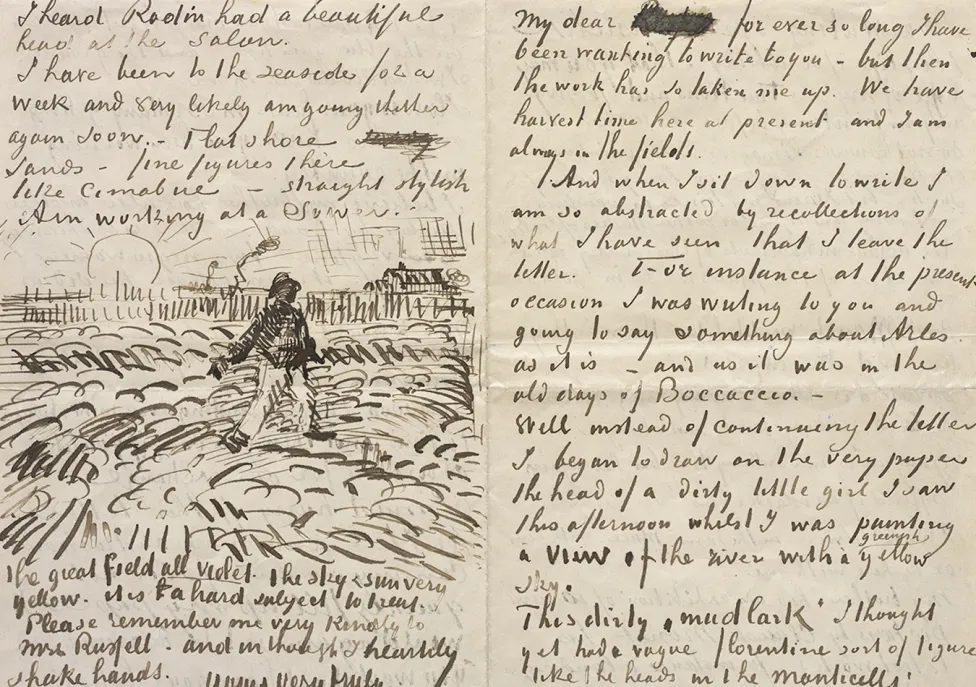 I heard Rodin had a beautiful
head at the Salon.
I have been to the seaside for a
week and very likely am going thither
again soon. - Flat shore
sands - fine figures there
like Cimabue - straight stylish
Am working at a Sower.
the great field all violet the sky & sun very
yellow. it is a hard subject to treat.
Please remember me very kindly to
mrs Russell - and in thought I heartily
shake hands.
yours very truly
My dear for ever so long I have
been wanting to write to you - but then
the work has so taken me up. We have
harvest time here at present and I am
always in the fields.
And when I sit down to write I
am so abstracted by recollections of
what I have seen that I leave the
letter. For instance at the present
occasion I was writing to you and
going to say something about Arles
as it is - and as it was in the
old days of Boccaccio. -
Well instead of continuing the letter
I began to draw on the very paper
the head of a dirty little girl I saw
this afternoon whilst I was painting
a view of the river with a greenish yellow
sky.
This dirty „mudlark" I thought
yet had a vague florentine sort of figure
like the heads in the monticelli